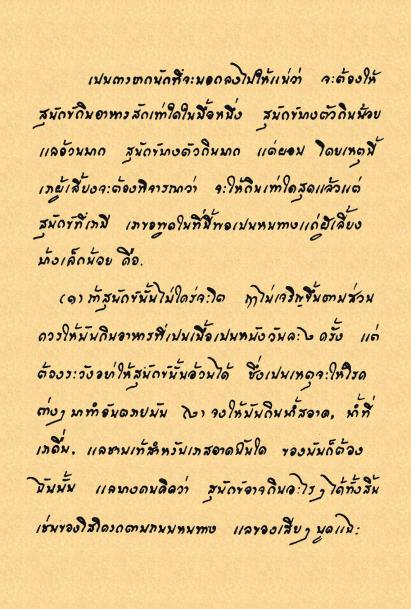 เปนการยากนักที่จะบอกลงไปให้แน่ว่า จะต้องให้
สุนัขกินอาหารสักเท่าใดในมื้อหนึ่ง สุนัขบางตัวกินน้อย
แลอ้วนมาก สุนัขบางตัวกินมาก แต่ผอม โดยเหตุนี้
เราผู้เลี้ยงจะต้องพิจารณาว่า จะให้กินเท่าใดสุดแล้วแต่
สุนัขที่เรามี เราขอพูดในที่นี้พอเปนหนทางแก่ผู้เลี้ยง
บ้างเล็กน้อย คือ.
(๑) ถ้าสุนัขนั้นไม่ใคร่จะโต ฤๅไม่เจริญขึ้นตามส่วน
ควรให้มันกินอาหารที่เปนเนื้อเปนหนังวันละ ๒ ครั้ง แต่
ต้องระวังอย่าให้สุนัขนั้นอ้วนได้ ซึ่งเปนเหตุจะให้โรค
ต่างๆ มาทำอันตรายมัน (๒) จงให้มันกินน้ำสอาด, น้ำที่
เราดื่ม, สำหรับเราสอาดฉันใด ของมันก็ต้อง
ฉันนั้น แลบางคนคิดว่า สุนัขอาจกินอะไรๆ ได้ทั้งสิ้น
เช่นของโสโครกตามถนนหนทาง แลของเสียๆ บูดแฉะ